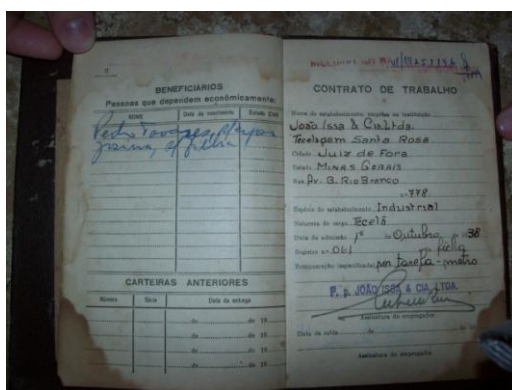 BENEFICIÁRIOS
Pessoas que dependem econômicamente:
NOME Data do nascimento Estado Civil
Pedro Tavares,
CARTEIRAS ANTERIORES
Número Série Data da entrega
de de 19
de de 19
de de 19
de de 19
CONTRATO DE TRABALHO
Nome do estabelecimento, empresa ou instituição
João Issa & Cia. Ltda.
Tecelagem Santa Rosa
Cidade Juiz de Fora
Estado Minas Gerais
Rua Av. B. Rio Branco
nº 778
Espécie do estabelecimento Industrial
Natureza do cargo Tecelã
Data da admissão 1º de Outubro de 1938
Registro nº 061 ficha
Remuneração (especificada) por tarefa-metro
P. p. JOÃO ISSA & CIA. LTDA.
Assinatura do empregador
Data da saída de de 19
Assinatura do empregador